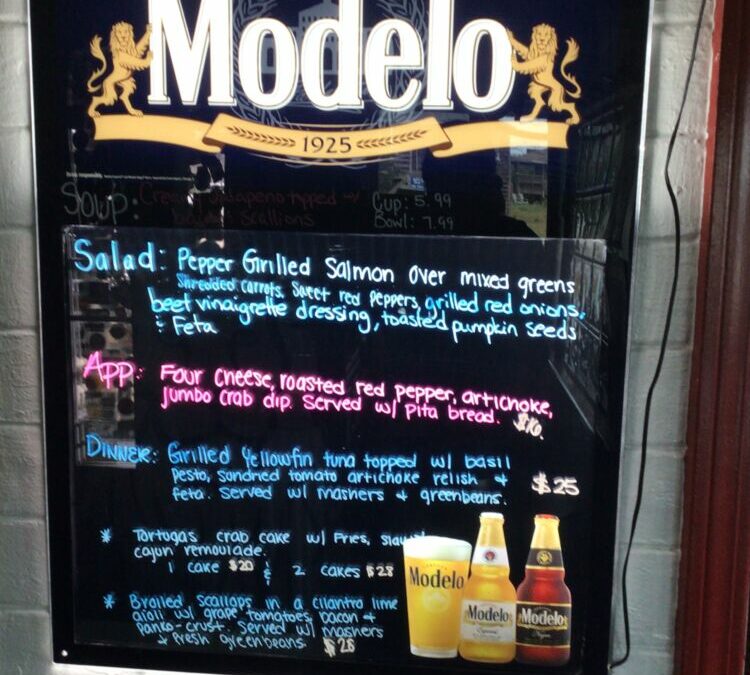 Modelo
1925
Soup: Creamy Jalapeno topped w/ Cup: 5.99
scallions Bowl: 7.99
Salad: Pepper Grilled Salmon over mixed greens
Shredded carrots, Sweet red peppers, grilled red onions,
beet vinaigrette dressing, toasted pumpkin seeds
& Feta
App: Four cheese, roasted red pepper, artichoke,
jumbo crab dip. Served w/ Pita bread. $16.
Dinner: Grilled Yellowfin tuna topped w/ basil
pesto, sundried tomato artichoke relish &
feta. Served w/ mashers & greenbeans. $25
* Tortugas crab cake w/ Fries, slaw
cajun remoulade.
1 cake $20 & 2 cakes $28
* Broiled scallops in a cilantro lime
aioli w/ grape tomatoes, bacon &
panko-crust. Served w/ mashers
& fresh greenbeans. $26
Modelo
Modelo
Especial
Modelo
Negra